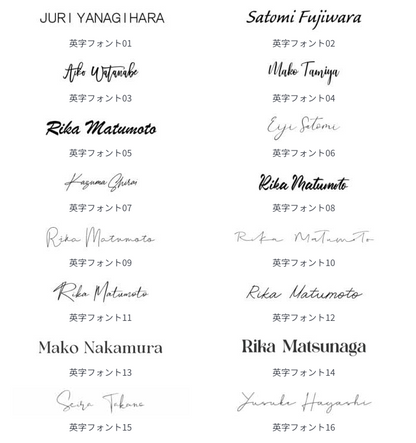 JURI YANAGIHARA
Satomi Fujiwara
英字フォント01
英字フォント02
Aiko Watanabe
Mako Tamiya
英字フォント03
英字フォント04
Rika Matumoto
Eiji Satomi
英字フォント05
英字フォント06
Kazuma Ghiron
Rika Matumoto
英字フォント07
英字フォント08
Rika Matumoto
Rika Matumoto
英字フォント09
英字フォント10
Rika Matumoto
Rika Matumoto
英字フォント11
英字フォント12
Mako Nakamura
Rika Matsunaga
英字フォント13
英字フォント14
Seira Takano
Yusuke Hayashi
英字フォント15
英字フォント16